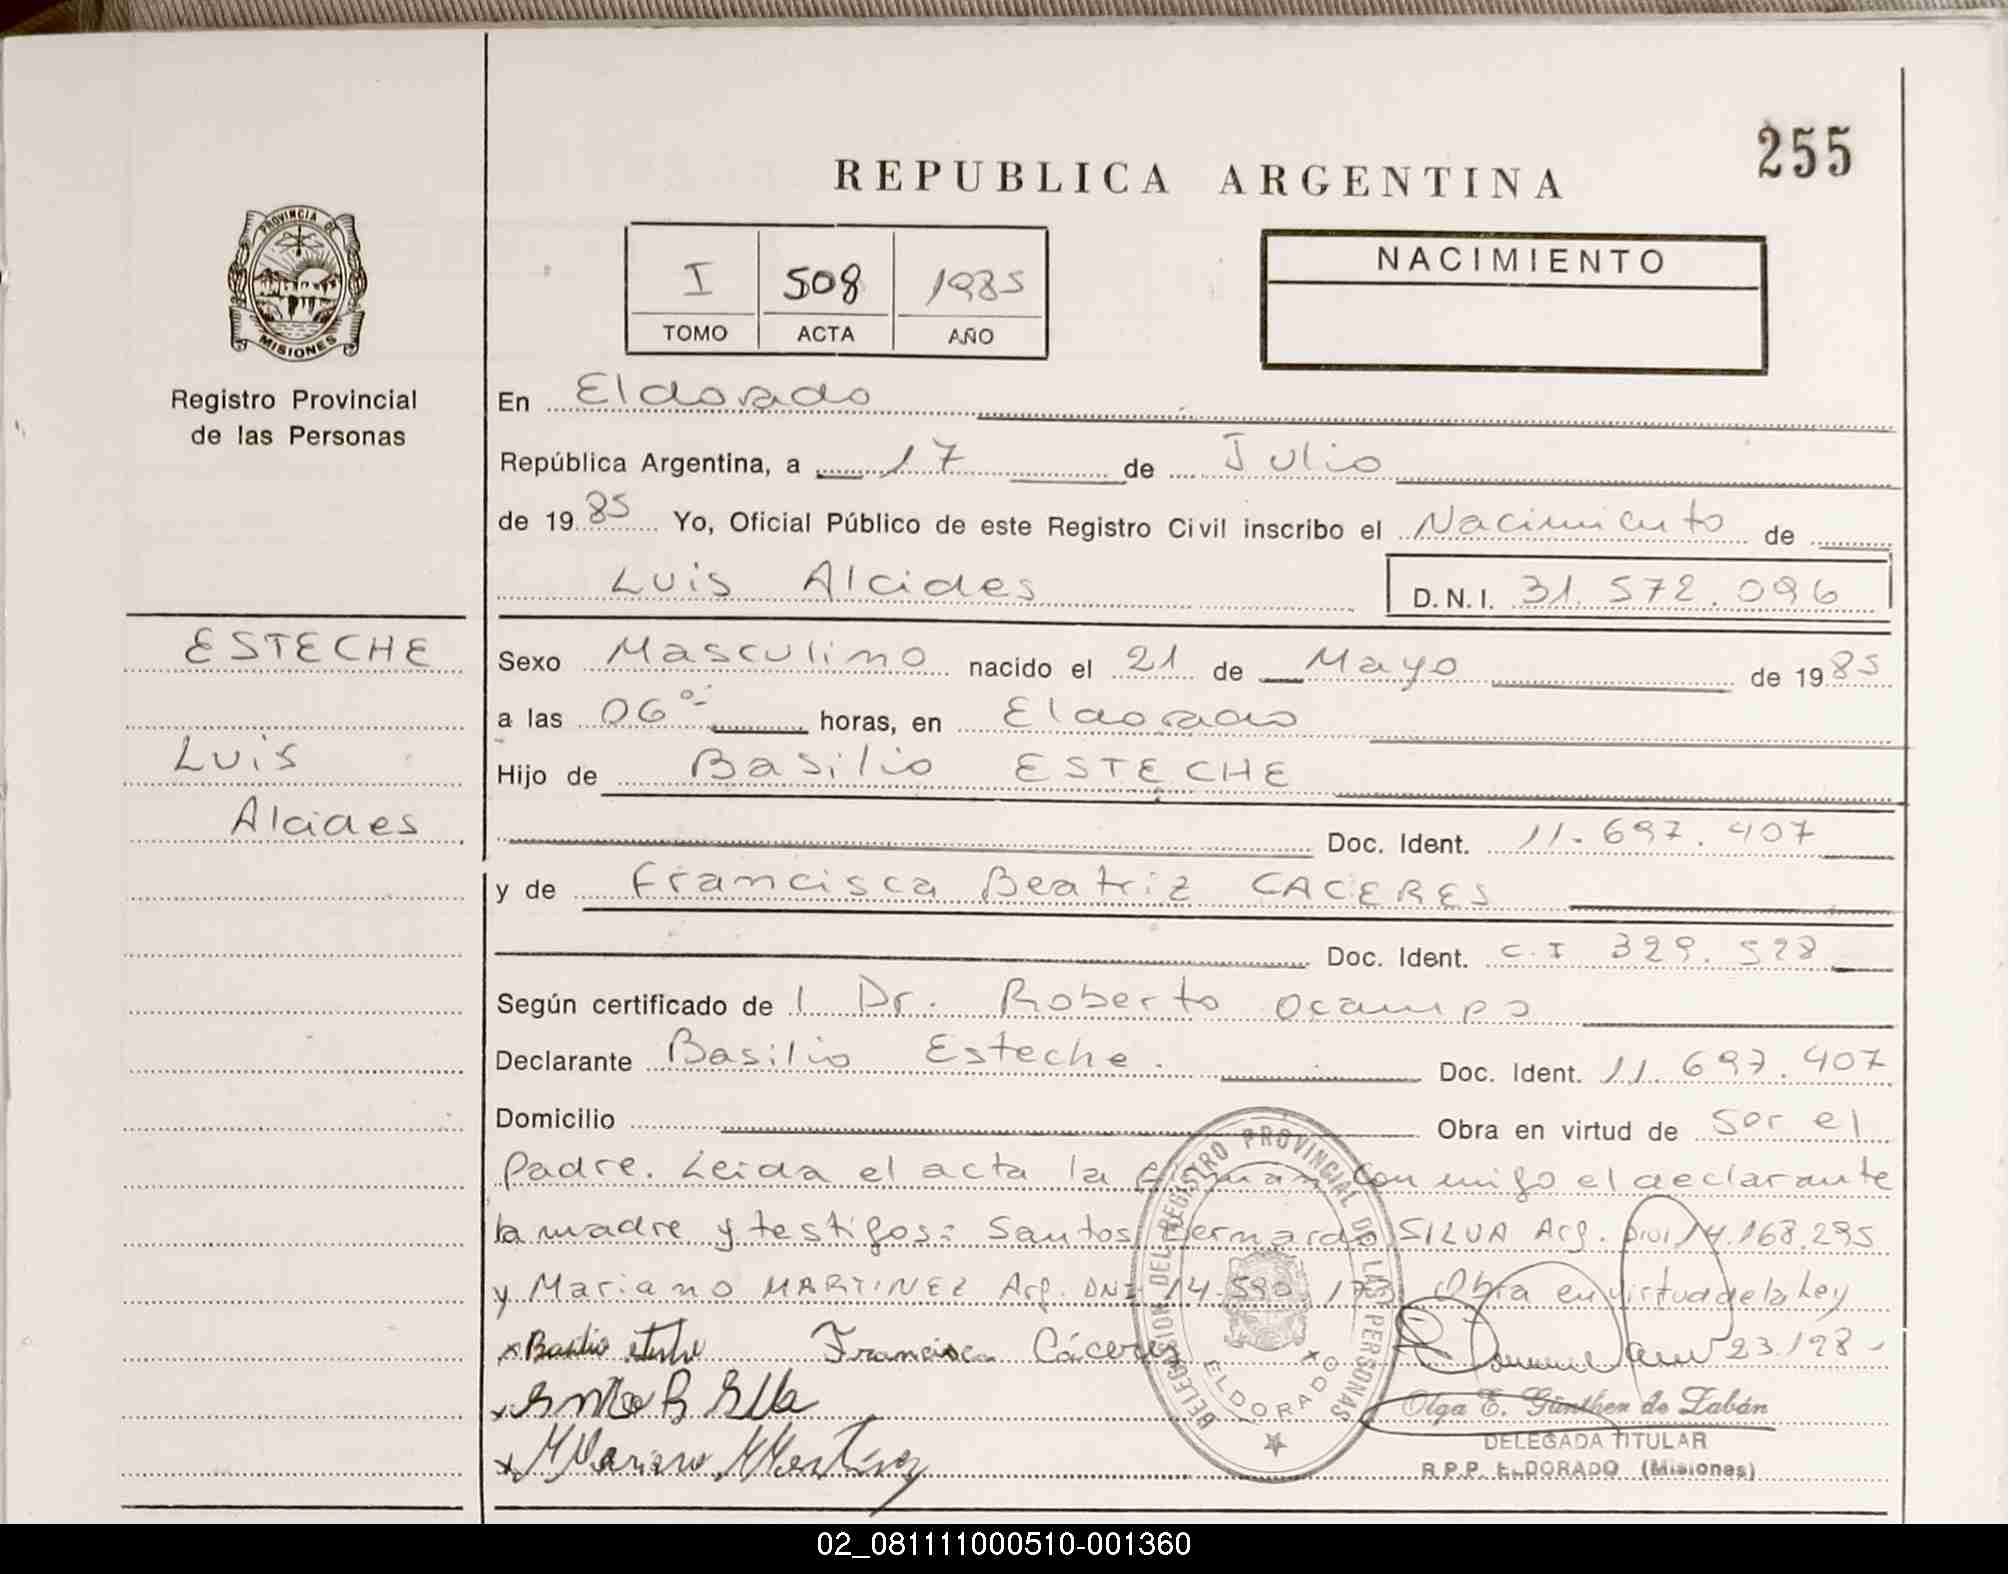 255
REPUBLICA ARGENTINA
PROVINCIA DE
MISIONES
Registro Provincial
de las Personas
I 508 1985
TOMO ACTA AÑO
NACIMIENTO
En Eldorado
República Argentina, a 17 de Julio
de 1985 Yo, Oficial Público de este Registro Civil inscribo el Nacimiento de
Luis Alcides D.N.I. 31.572.096
ESTECHE
Luis
Alcides
Sexo Masculino nacido el 21 de Mayo de 1985
a las 06 horas, en Eldorado
Hijo de Basilio ESTECHE
Doc. Ident. 11.697.407
y de Francisca Beatriz CACERES
Doc. Ident. C.I 329.528
Según certificado de l Dr. Roberto Ocampo
Declarante Basilio Esteche. Doc. Ident. 11.697.407
Domicilio Obra en virtud de ser el
padre. Leida el acta la firman con migo el declarante
la madre y testigos: Santos Bernardo SILVA Arg. DNI 14.168.295
y Mariano MARTINEZ Arg. DNI 14.590.17 Obra en virtud de la Ley
x Basilio Esteche Francisca Cáceres 23/128-
DELEGACION DEL REGISTRO PROVINCIAL DE LAS PERSONAS
ELDORADO
Olga E. Günther de Zabán
DELEGADA TITULAR
R.P.P. ELDORADO (Misiones)
x Mariano Martínez
02_081111000510-001360